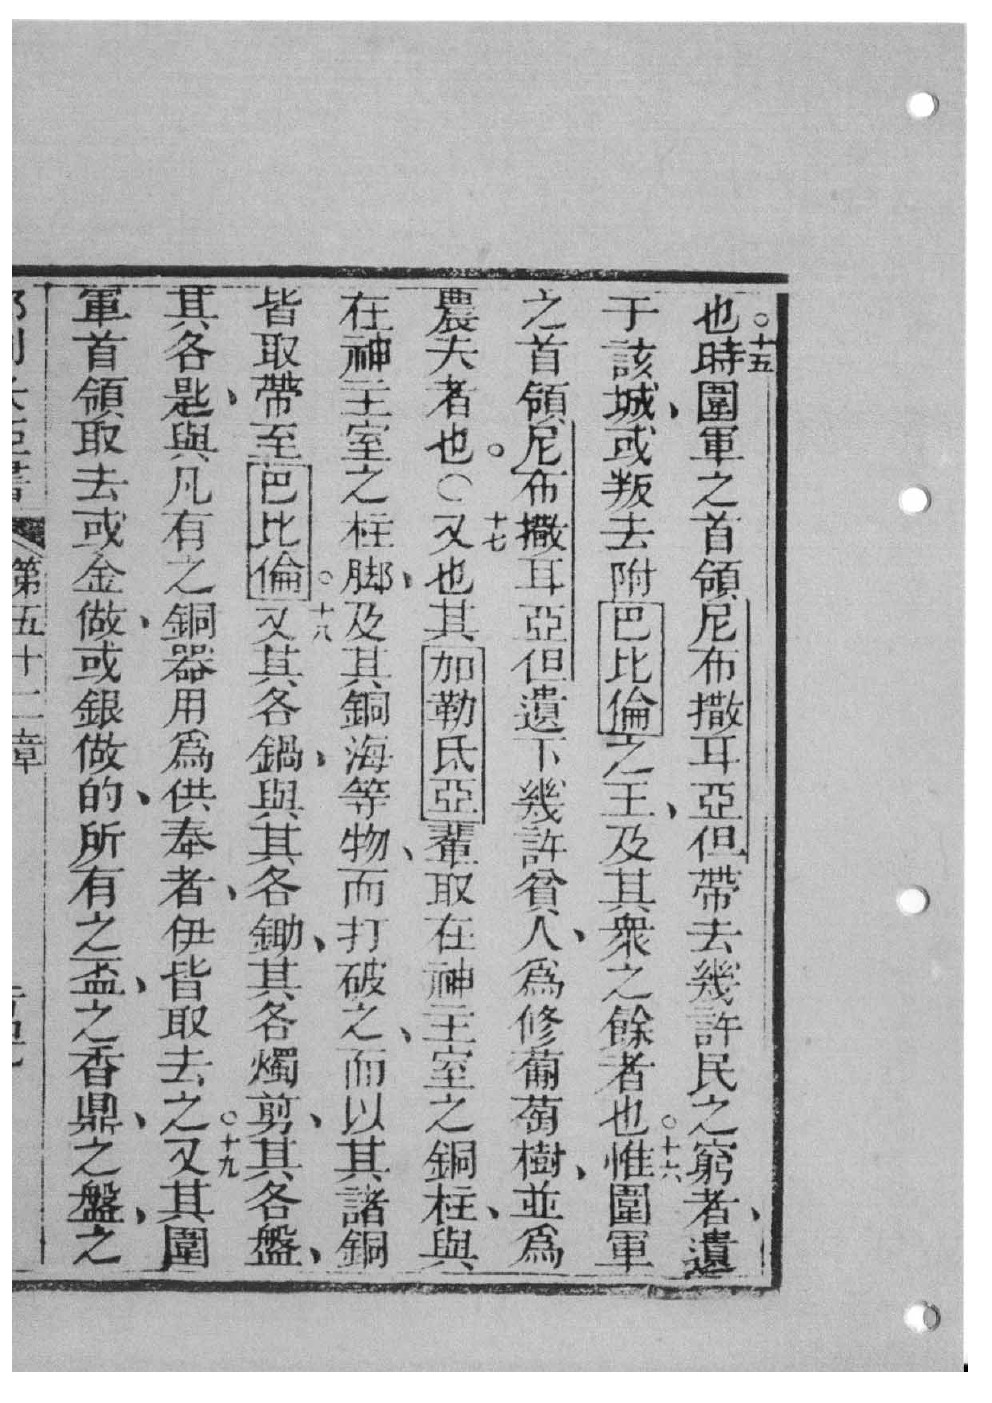 也○十五時圍軍之首領尼布撒耳亞但帶去幾許民之窮者、遺
于該城、或叛去附巴比倫之王、及其衆之餘者也○十六惟圍軍
之首領尼布撒耳亞但遺下幾許貧人、爲修葡萄樹、並爲
農夫者也。○十七又也其加勒氐亞輩取在神主室之銅柱、與
在神主室之柱脚、及其銅海等物、而打破之、而以其諸銅
皆取帶至巴比倫○十八又其各鍋、與其各鋤、其各燭剪、其各盤、
其各匙、與凡有之銅器用爲供奉者、伊皆取去之○十九又其圍
軍首領取去或金做、或銀做的、所有之盃、之香鼎、之盤、之
書 第五十二章